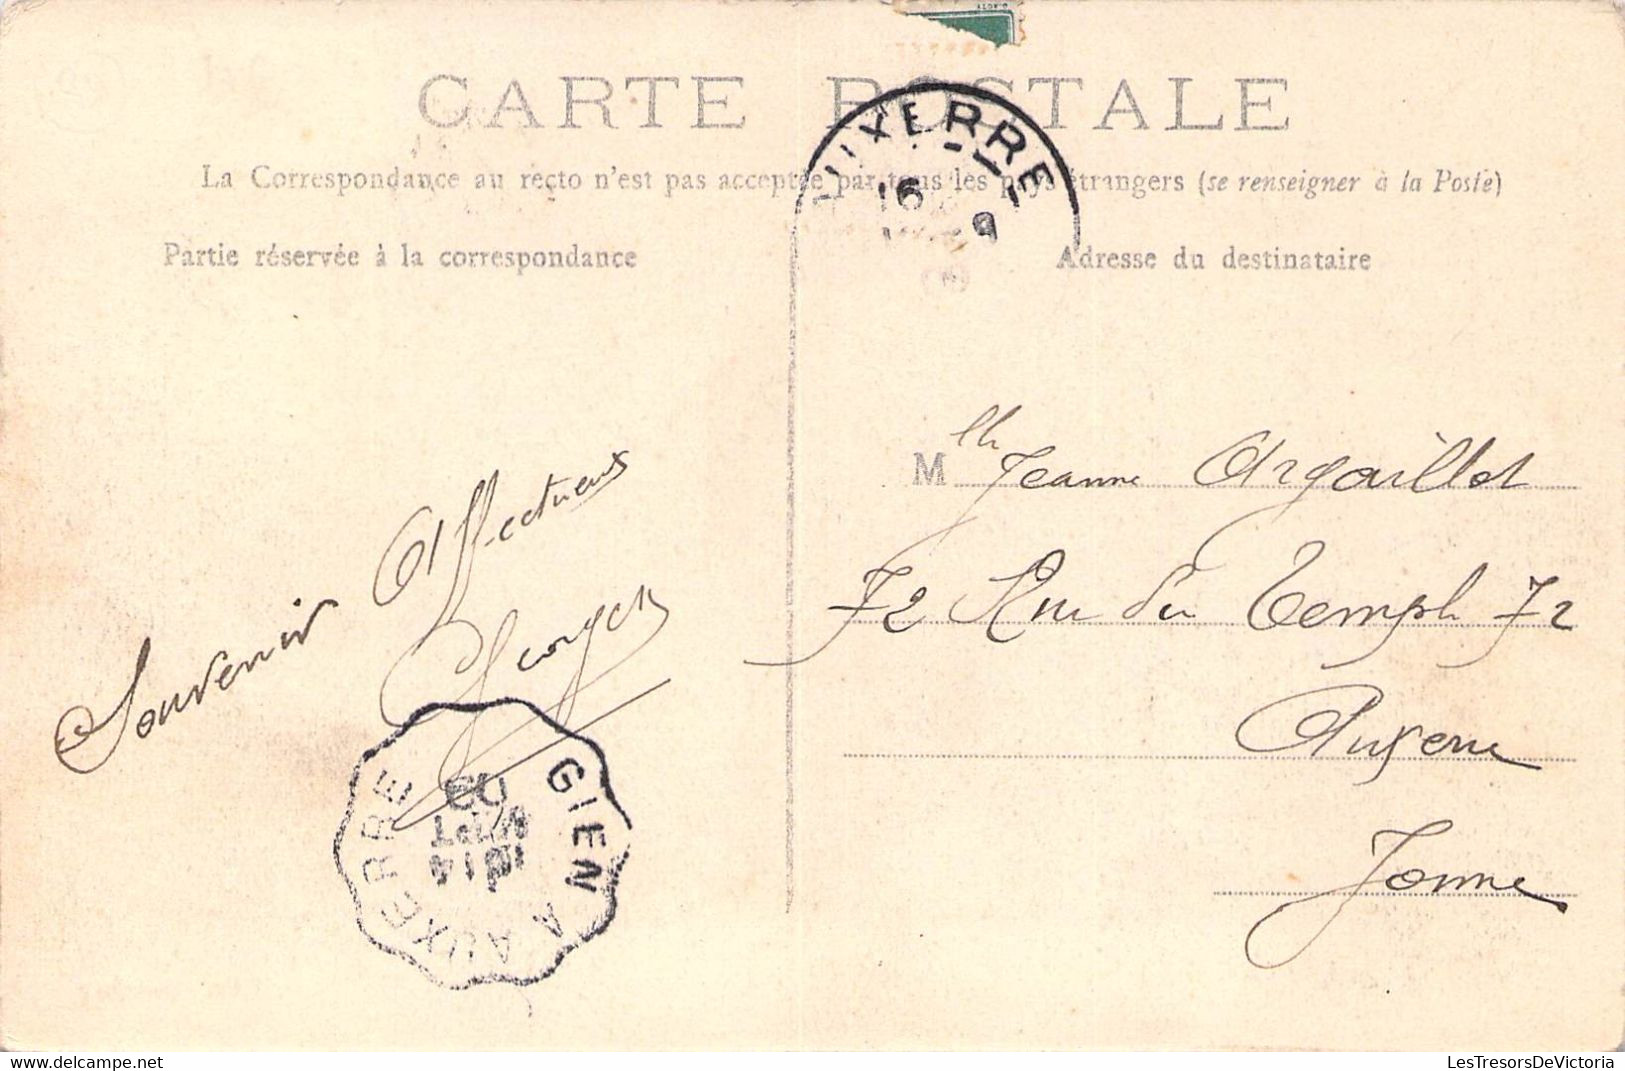 CARTE POSTALE
La Correspondance au recto n'est pas acceptée par tous les pays étrangers (se renseigner à la Poste)
Partie réservée à la correspondance
Adresse du destinataire
AUXERRE
16
9
Souvenir Affectueux
Georges
GIEN A AUXERRE
Mlle Jeanne Argaillot
72 Rue du Temple 72
Auxerre
Yonne
LesTresorsDeVictoria